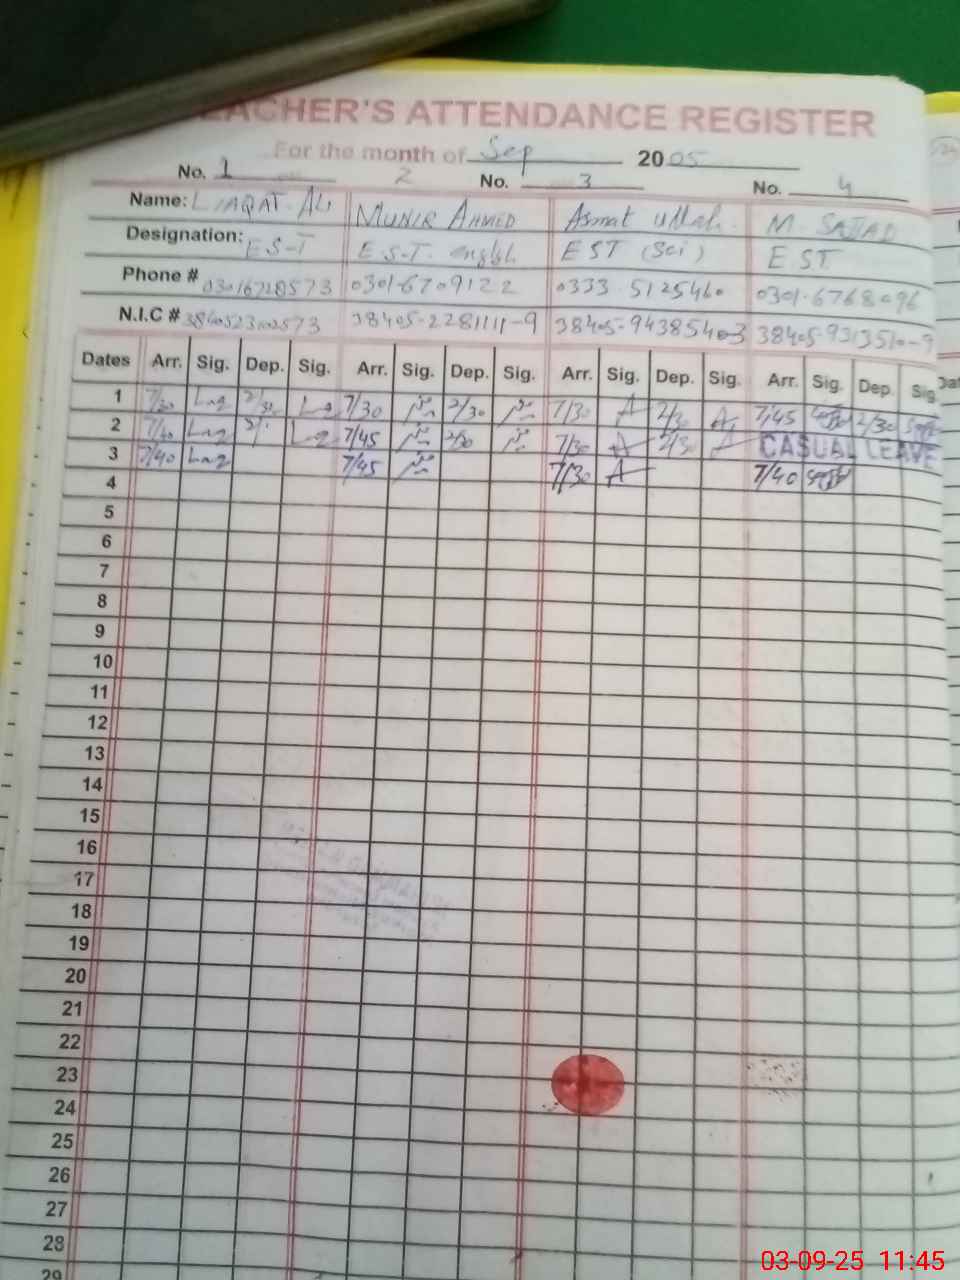 TEACHER'S ATTENDANCE REGISTER
For the month of Sep 2005
No. 1 2 No. 3 No. 4
Name: LIAQAT. Ali MUNIR AHMED Asmat ullah. M. SAJJAD
Designation: E S-T E.S.T. english EST (Sci) E ST
Phone # 03016728573 0301-6709122 0333.5125460 0301-6768096
N.I.C # 38405-2281111-9 38405-9438540-3 38405-9313510-9
Dates Arr. Sig. Dep. Sig. Arr. Sig. Dep. Sig. Arr. Sig. Dep. Sig. Arr. Sig. Dep. Sig. Dat
1 7/30 Laq 2/30 Laq 7/30 2/30 7/30 A 2/30 A 7/45 2/30
2 7/40 Laq Laq 7/45 2/30 7/30 A 2/30 A CASUAL LEAVE
3 7/40 Laq 7/45 7/30 A 7/40
4
5
6
7
8
9
10
11
12
13
14
15
16
17
18
19
20
21
22
23
24
25
26
27
28
29
03-09-25 11:45